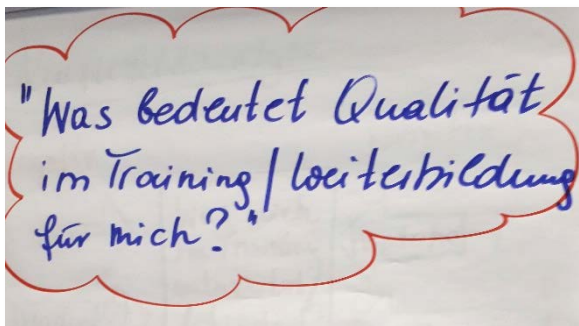 "Was bedeutet Qualität
im Training / Weiterbildung
für mich?"